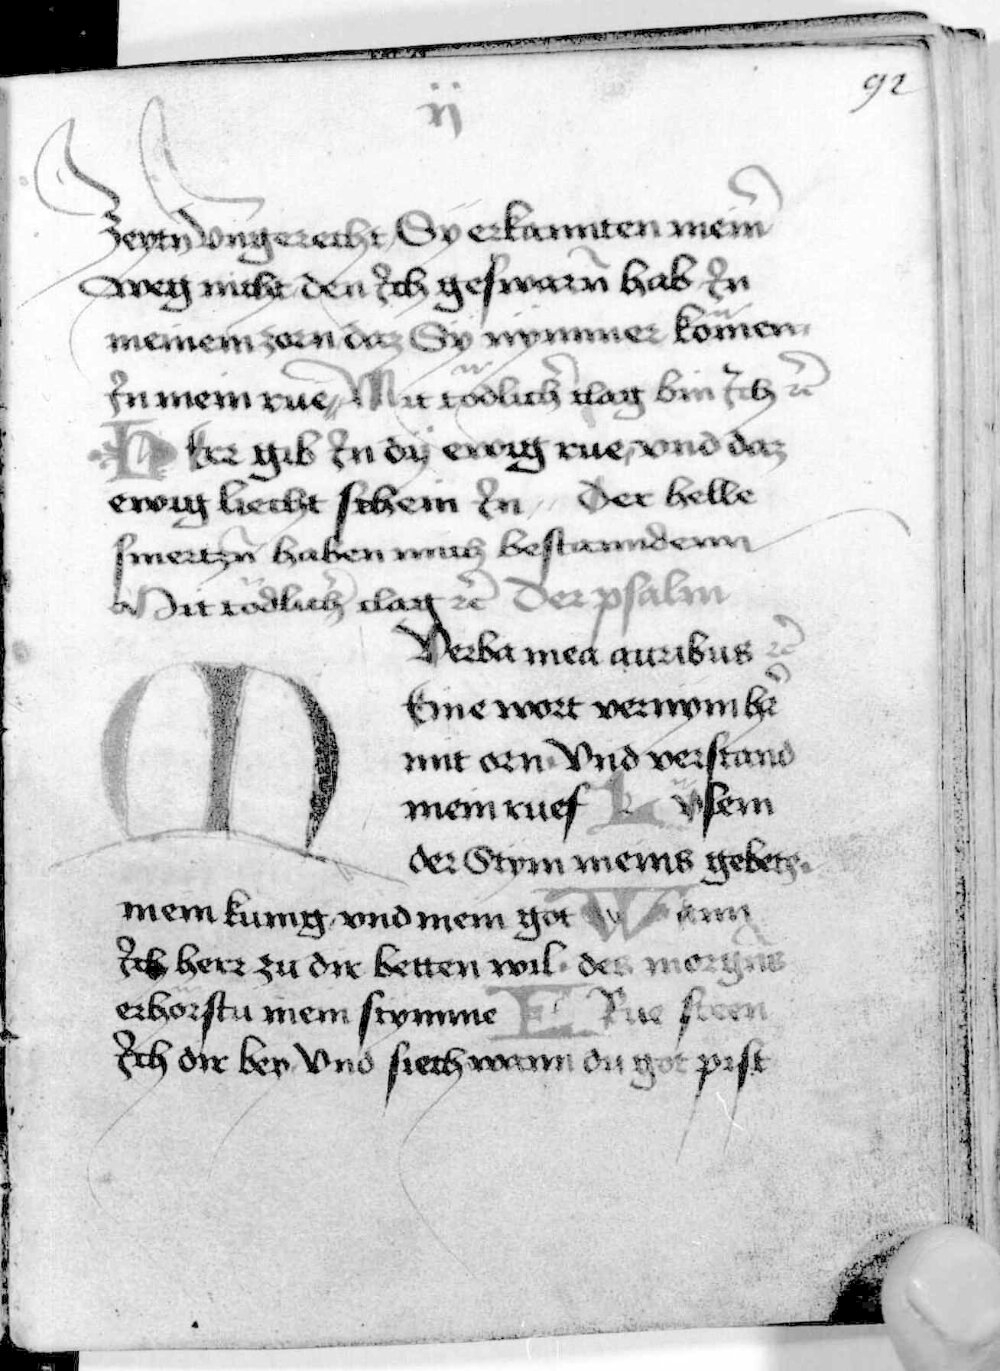 92
ij
Zeytn vngerecht Sy erkannten mein
weg nicht den Ich geswarn hab In
meinem zorn daz Sy nymmer kömen
In mein rue Mit tödlich clag bin Ich rc
Herr gib In dy ewig rue vnd daz
ewig liecht schein In Der helle
smertzn haben mich bestannden
Mit tödlich clag rc Der psalm
Verba mea auribus rc
Meine wort vernym hr
mit orn Vnd verstand
mein ruef Lüsem
der Stym meins gebetz
mein kunig vnd mein got Wann
Ich herr zu dir betten wil des morgns
erhörstu mein stymme ERue steen
Ich dir bey Vnd siech wann du got pist